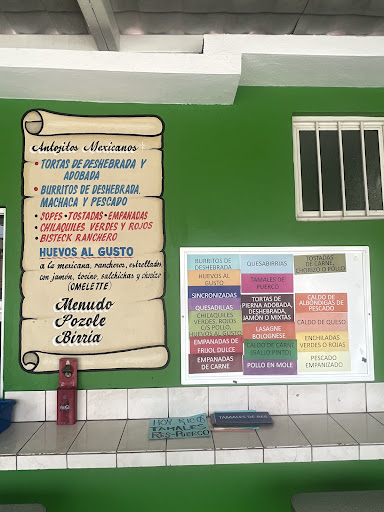 Antojitos Mexicanos
• TORTAS DE DESHEBRADA Y
ADOBADA
• BURRITOS DE DESHEBRADA,
MACHACA Y PESCADO
• SOPES • TOSTADAS • EMPANADAS
• CHILAQUILES VERDES Y ROJOS
• BISTECK RANCHERO
HUEVOS AL GUSTO
a la mexicana, rancheros, estrellados,
con jamón, tocino, salchichas y chorizo
(OMELETTE)
Menudo
Pozole
Birria
BURRITOS DE
DESHEBRADA
HUEVOS AL
GUSTO
SINCRONIZADAS
QUESADILLAS
CHILAQUILES
VERDES, ROJOS
C/S POLLO,
HUEVOS AL GUSTO
EMPANADAS DE
FRIJOL DULCE
EMPANADAS
DE CARNE
QUESABIRRIAS
TAMALES DE
PUERCO
TORTAS DE
PIERNA ADOBADA,
DESHEBRADA,
JAMÓN O MIXTAS
LASAGNE
BOLOGNESE
CALDO DE CARNE
(GALLO PINTO)
POLLO EN MOLE
TOSTADAS
DE CARNE,
CHORIZO O POLLO
CALDO DE
ALBÓNDIGAS DE
PESCADO
CALDO DE QUESO
ENCHILADAS
VERDES O ROJAS
PESCADO
EMPANIZADO
HOY RICOS
TAMALES
RES-PUERCO
TAMALES DE RES